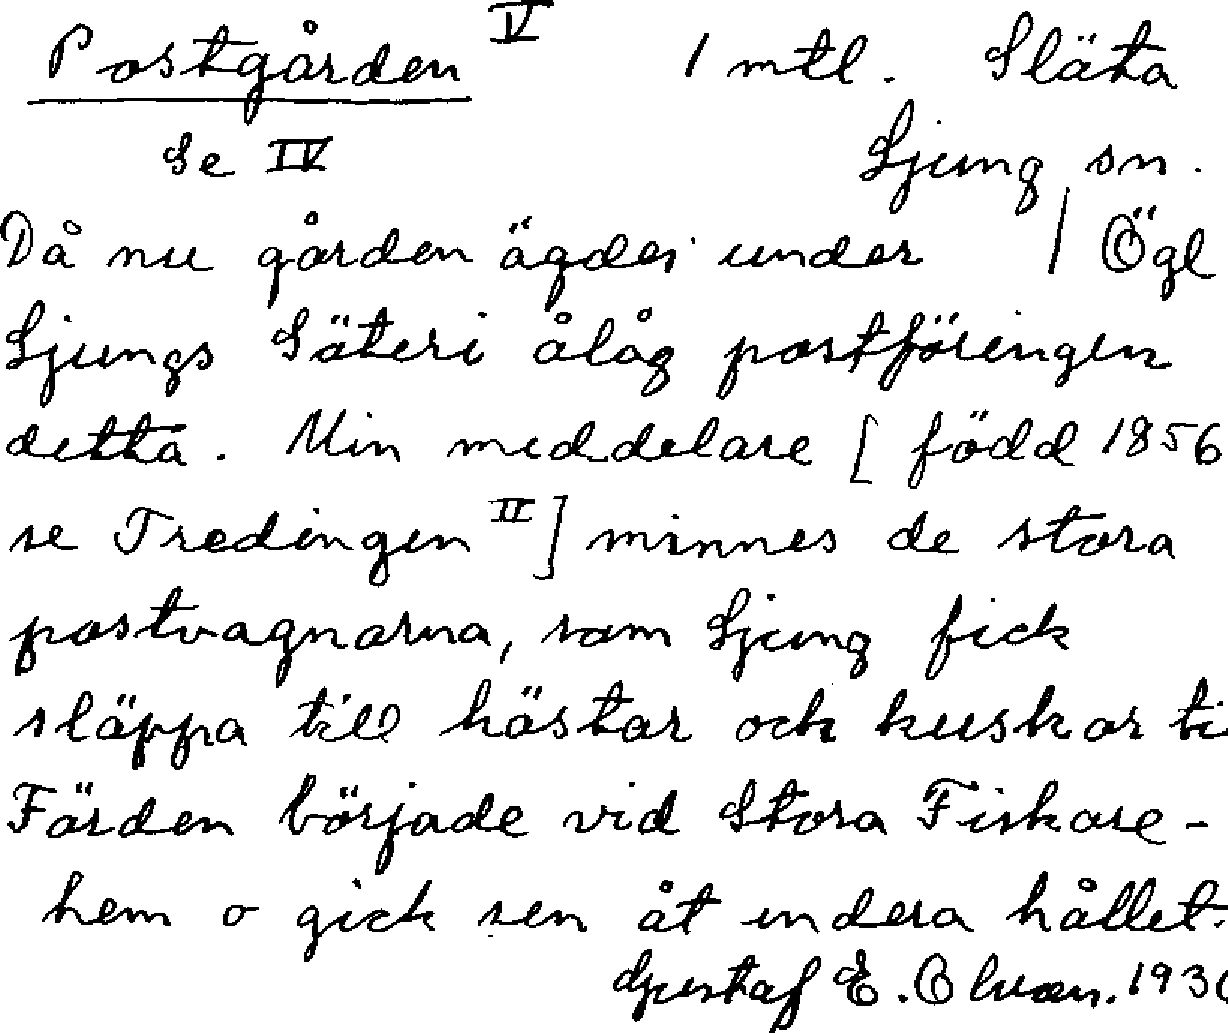 Postgården V 1 mtl. Släta
Se IV Ljung sn.
Då nu gården ägdes under / Ögl
Ljungs Säteri ålåg postföringen
detta. Min meddelare [född 1856
se Tredingen II] minnes de stora
postvagnarna, som Ljung fick
släppa till hästar och kuskar ti
Färden började vid Stora Fiskare-
hem o gick sen åt endera hållet.
Gustaf E. 193